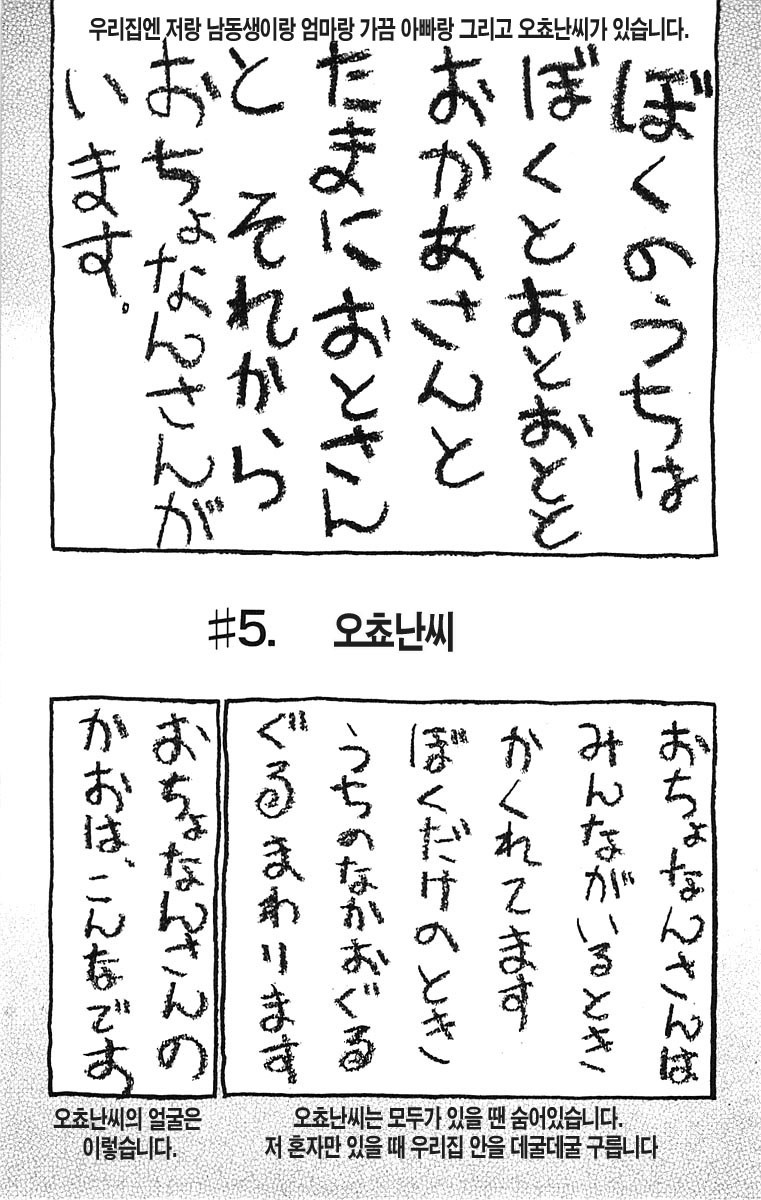 우리집엔 저랑 남동생이랑 엄마랑 가끔 아빠랑 그리고 오쵸난씨가 있습니다.
ぼくのうちは
ぼくとおとおとと
おかあさんと
たまにおとさん
と それから
おちょなんさんが
います。
#5. 오쵸난씨
おちょなんさんは
みんながいるとき
かくれてます
ぼくだけのとき
うちのなかおぐる
ぐるまわります
おちょなんさんの
かおは、こんなです
오쵸난씨는 모두가 있을 땐 숨어있습니다.
저 혼자만 있을 때 우리집 안을 데굴데굴 구릅니다
오쵸난씨의 얼굴은
이렇습니다.